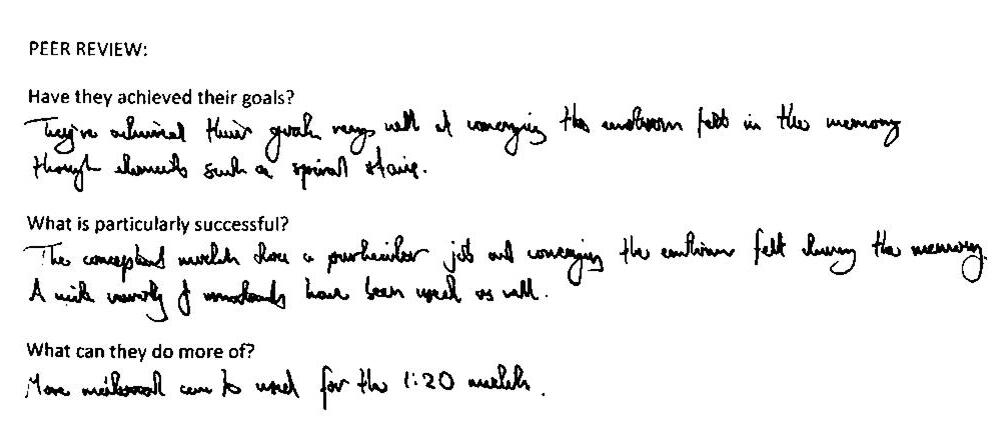 PEER REVIEW:
Have they achieved their goals?
They've achieved their goals very well at conveying the emotions felt in the memory
through elements such a spiral stairs.
What is particularly successful?
The conceptual models does a particular job at conveying the emotions felt during the memory.
A wide variety of materials have been used as well.
What can they do more of?
More material can be used for the 1:20 models.